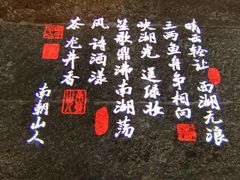 晴云轻让
西湖无浪
三两鱼舟争相问
映湖光 逞绿妆
笙歌鼎沸南湖荡
风 诗酒漾
茶 龙井香
南朝山人